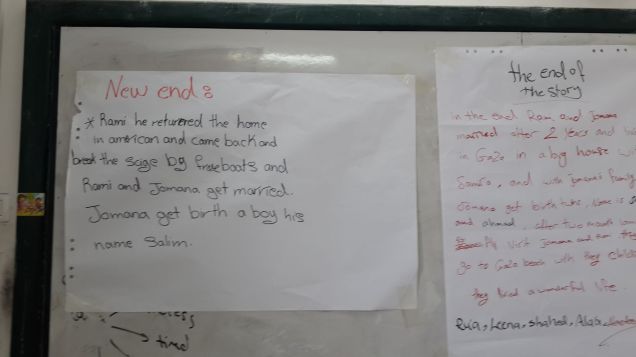 New end:
* Rami he returered the home
in american and came back and
break the saige by freeboats and
Rami and Jomana get married.
Jomana get birth a boy his
name Salim.
the end of
the story
in the end Rami and Jomana
married after 2 years and
in Gaza in a big house
and with Jomana's family
Jomana get birth twins, Name is
and ahmad. after two month
visit Jomana and
go to Gaza beach with they
they lived a wonderful life.
Leena, shahed, Alaa,
tired